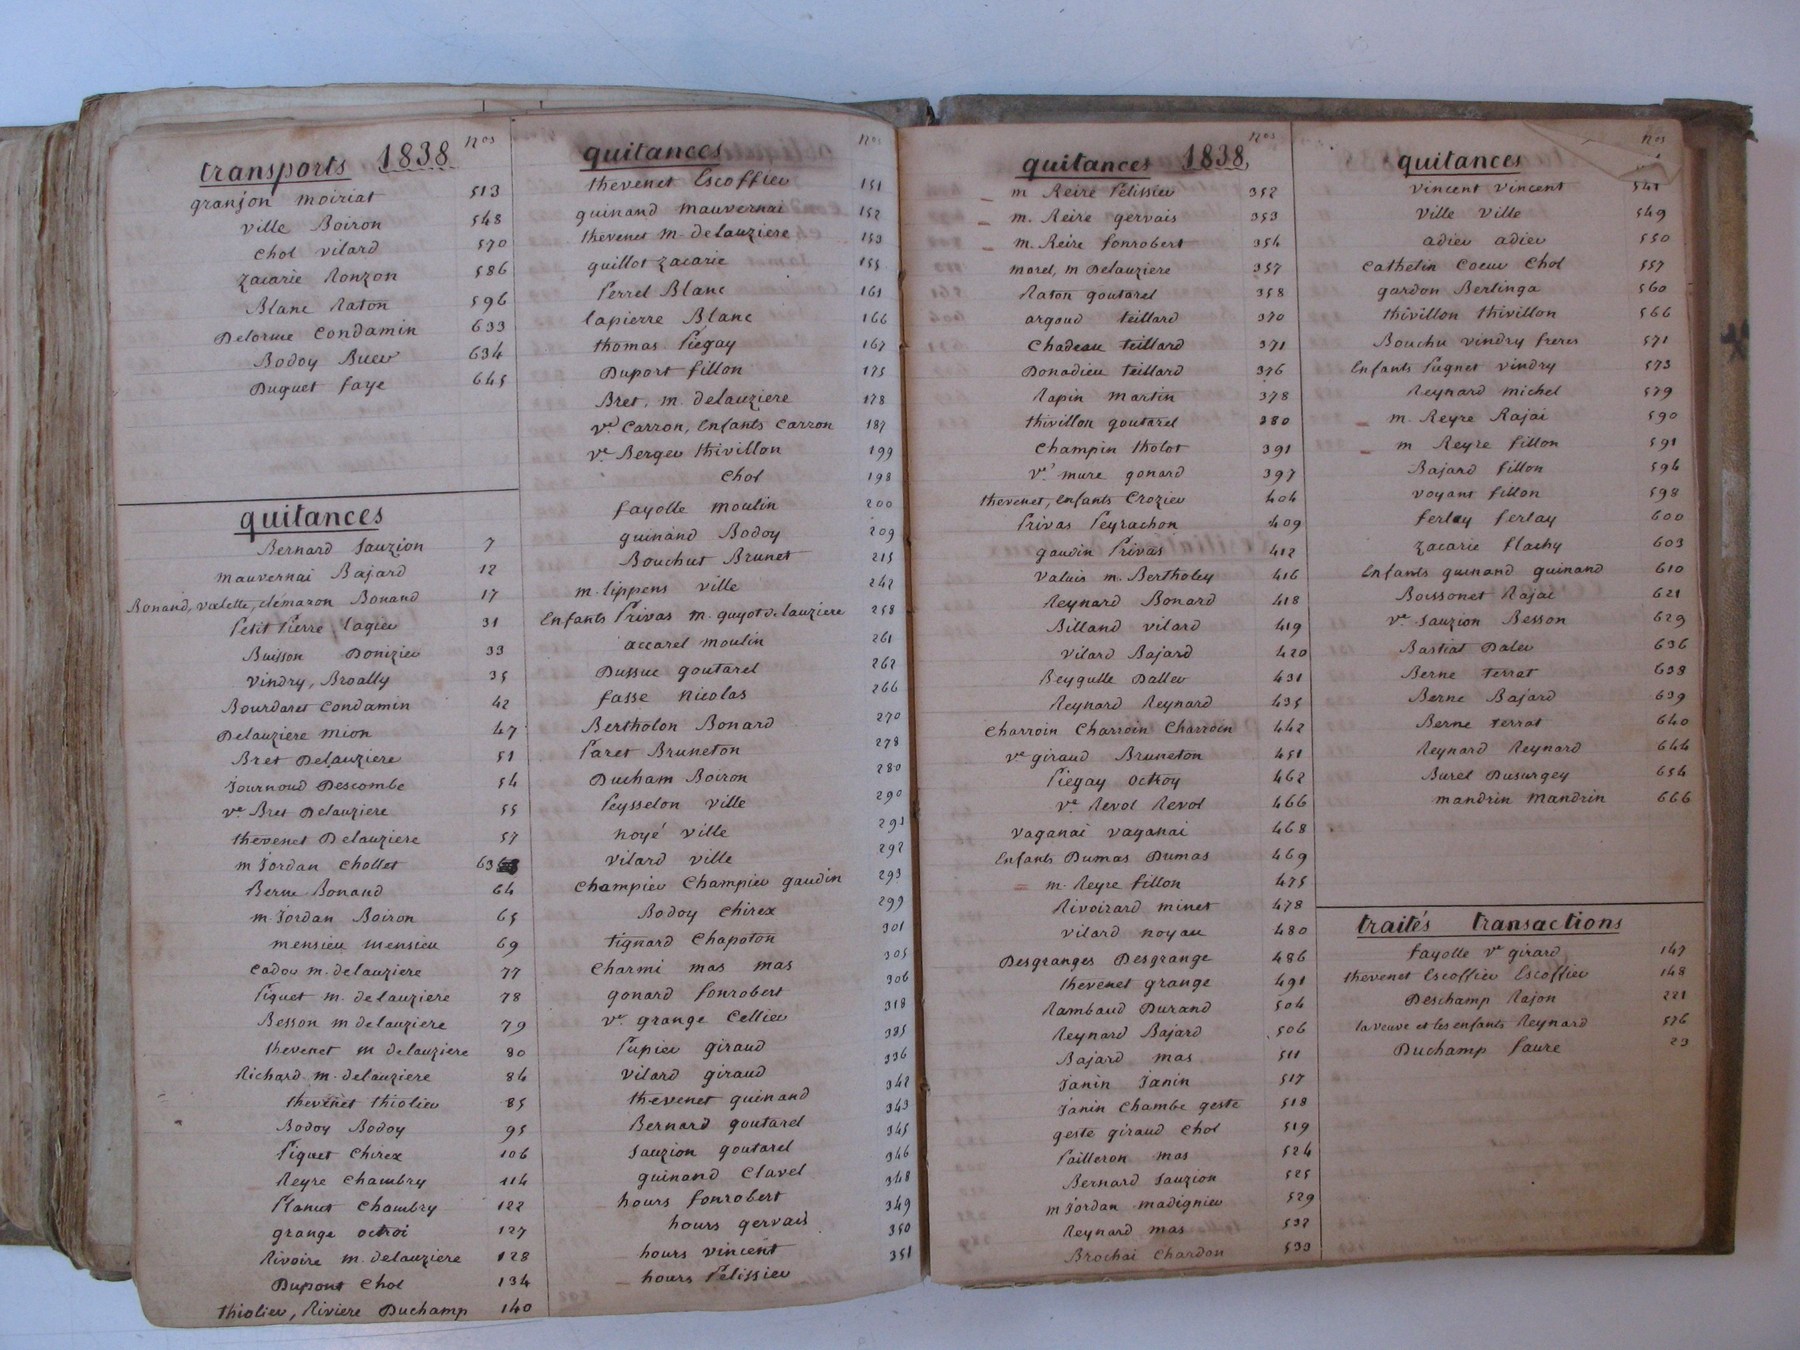 transports 1838. Nos
granjon moiriat 513
ville Boiron 548
Chol vilard 570
Zacarie Ronzon 586
Blanc Raton 596
Delorme Condamin 633
Bodoy Buer 634
Duguet faye 645
quitances
Bernard Sauzion 7
mauvernai Bajard 12
Bonand, valette, clémaron Bonand 17
Petit Pierre lagier 31
Buisson Donizieu 33
vindry, Broally 35
Bourdaret Condamin 42
Delauziere mion 47
Bret Delauziere 51
Journoud Descombe 54
ve Bret Delauziere 55
thevenet Delauziere 57
m Jordan Chollet 63
Berne Bonand 64
m. Jordan Boiron 65
mensieu mensieu 69
Cador m. delauziere 77
Piguet m. delauziere 78
Besson m delauziere 79
thevenet m delauziere 80
Richard m. delauziere 84
thevenet thiolier 85
Bodoy Bodoy 95
Piguet Chirex 106
Reyre Chambry 114
Planut Chambry 122
grange octroi 127
Rivoire m. delauziere 128
Dupont Chol 134
thiolier, Riviere Duchamp 140
quitances Nos
thevenet Escoffier 151
guinand mauvernai 152
thevenet m. delauziere 153
guillot Zacarie 155
Perrel Blanc 161
lapierre Blanc 166
thomas Piegay 167
Duport fillon 175
Bret, m. delauziere 178
ve Carron, Enfants Carron 187
ve Berger thivillon 199
Chol 198
fayolle moulin 200
guinand Bodoy 209
Bouchut Brunet 215
m. lippens ville 242
Enfants Privas m. guyot delauziere 258
accarel moulin 261
Dussuc goutarel 262
fasse Nicolas 266
Bertholon Bonard 270
Paret Bruneton 278
Ducham Boiron 280
Peysselon ville 290
noyé ville 291
vilard ville 292
Champier Champier gaudin 293
Bodoy Chirex 299
tignard Chapoton 301
Charmi mas mas 305
gonard fonrobert 306
ve grange Cellier 318
Pupier giraud 335
vilard giraud 336
thevenet guinand 342
Bernard goutarel 343
Sauzion goutarel 345
guinand Clavel 346
hours fonrobert 348
hours gervais 349
hours vincent 350
hours Pelissier 351
quitances 1838. Nos
m Reire Pelissier 352
m. Reire gervais 353
m. Reire fonrobert 354
morel, m Delauziere 357
Raton goutarel 358
argoud teillard 370
Chadeau teillard 371
Donadieu teillard 376
Rapin martin 378
thivillon goutarel 380
Champin tholot 391
ve mure gonard 397
thevenet, Enfants Crozier 404
Privas Peyrachon 409
gaudin Privas 412
Valuis m. Bertholey 416
Reynard Bonard 418
Billand vilard 419
vilard Bajard 420
Beygulle Daller 431
Reynard Reynard 435
Charroin Charroin Charroin 442
ve giraud Bruneton 451
Piegay octroy 462
ve Revol Revol 466
vaganai vaganai 468
Enfants Dumas Dumas 469
m. Reyre fillon 475
Rivoirard minet 478
vilard noyau 480
Desgranges Desgrange 486
thevenet grange 491
Rambaud Durand 504
Reynard Bajard 506
Bajard mas 511
Janin Janin 517
Janin Chambe geste 518
geste giraud Chol 519
Pailleron mas 524
Bernard Sauzion 525
m Jordan madignier 529
Reynard mas 532
Brochai Chardon 533
quitances Nos
vincent vincent 541
ville ville 549
adieu adieu 550
Cathelin Coeur Chol 557
gardon Berlinga 560
thivillon thivillon 566
Bouchu vindry freres 571
Enfants Pugnet vindry 573
Reynard michel 579
m. Reyre Rajai 590
m Reyre fillon 591
Bajard fillon 596
voyant fillon 598
ferlay ferlay 600
Zacarie flachy 603
Enfants guinand guinand 610
Boissonet Rajai 621
ve Sauzion Besson 629
Bastiat Daler 636
Berne terrat 638
Berne Bajard 639
Berne terrat 640
Reynard Reynard 644
Burel Dusurgey 654
mandrin mandrin 666
traités transactions
fayolle ve girard 147
thevenet Escoffier Escoffier 148
Deschamp Rajon 221
la veuve et les enfants Reynard 576
Duchamp faure 23